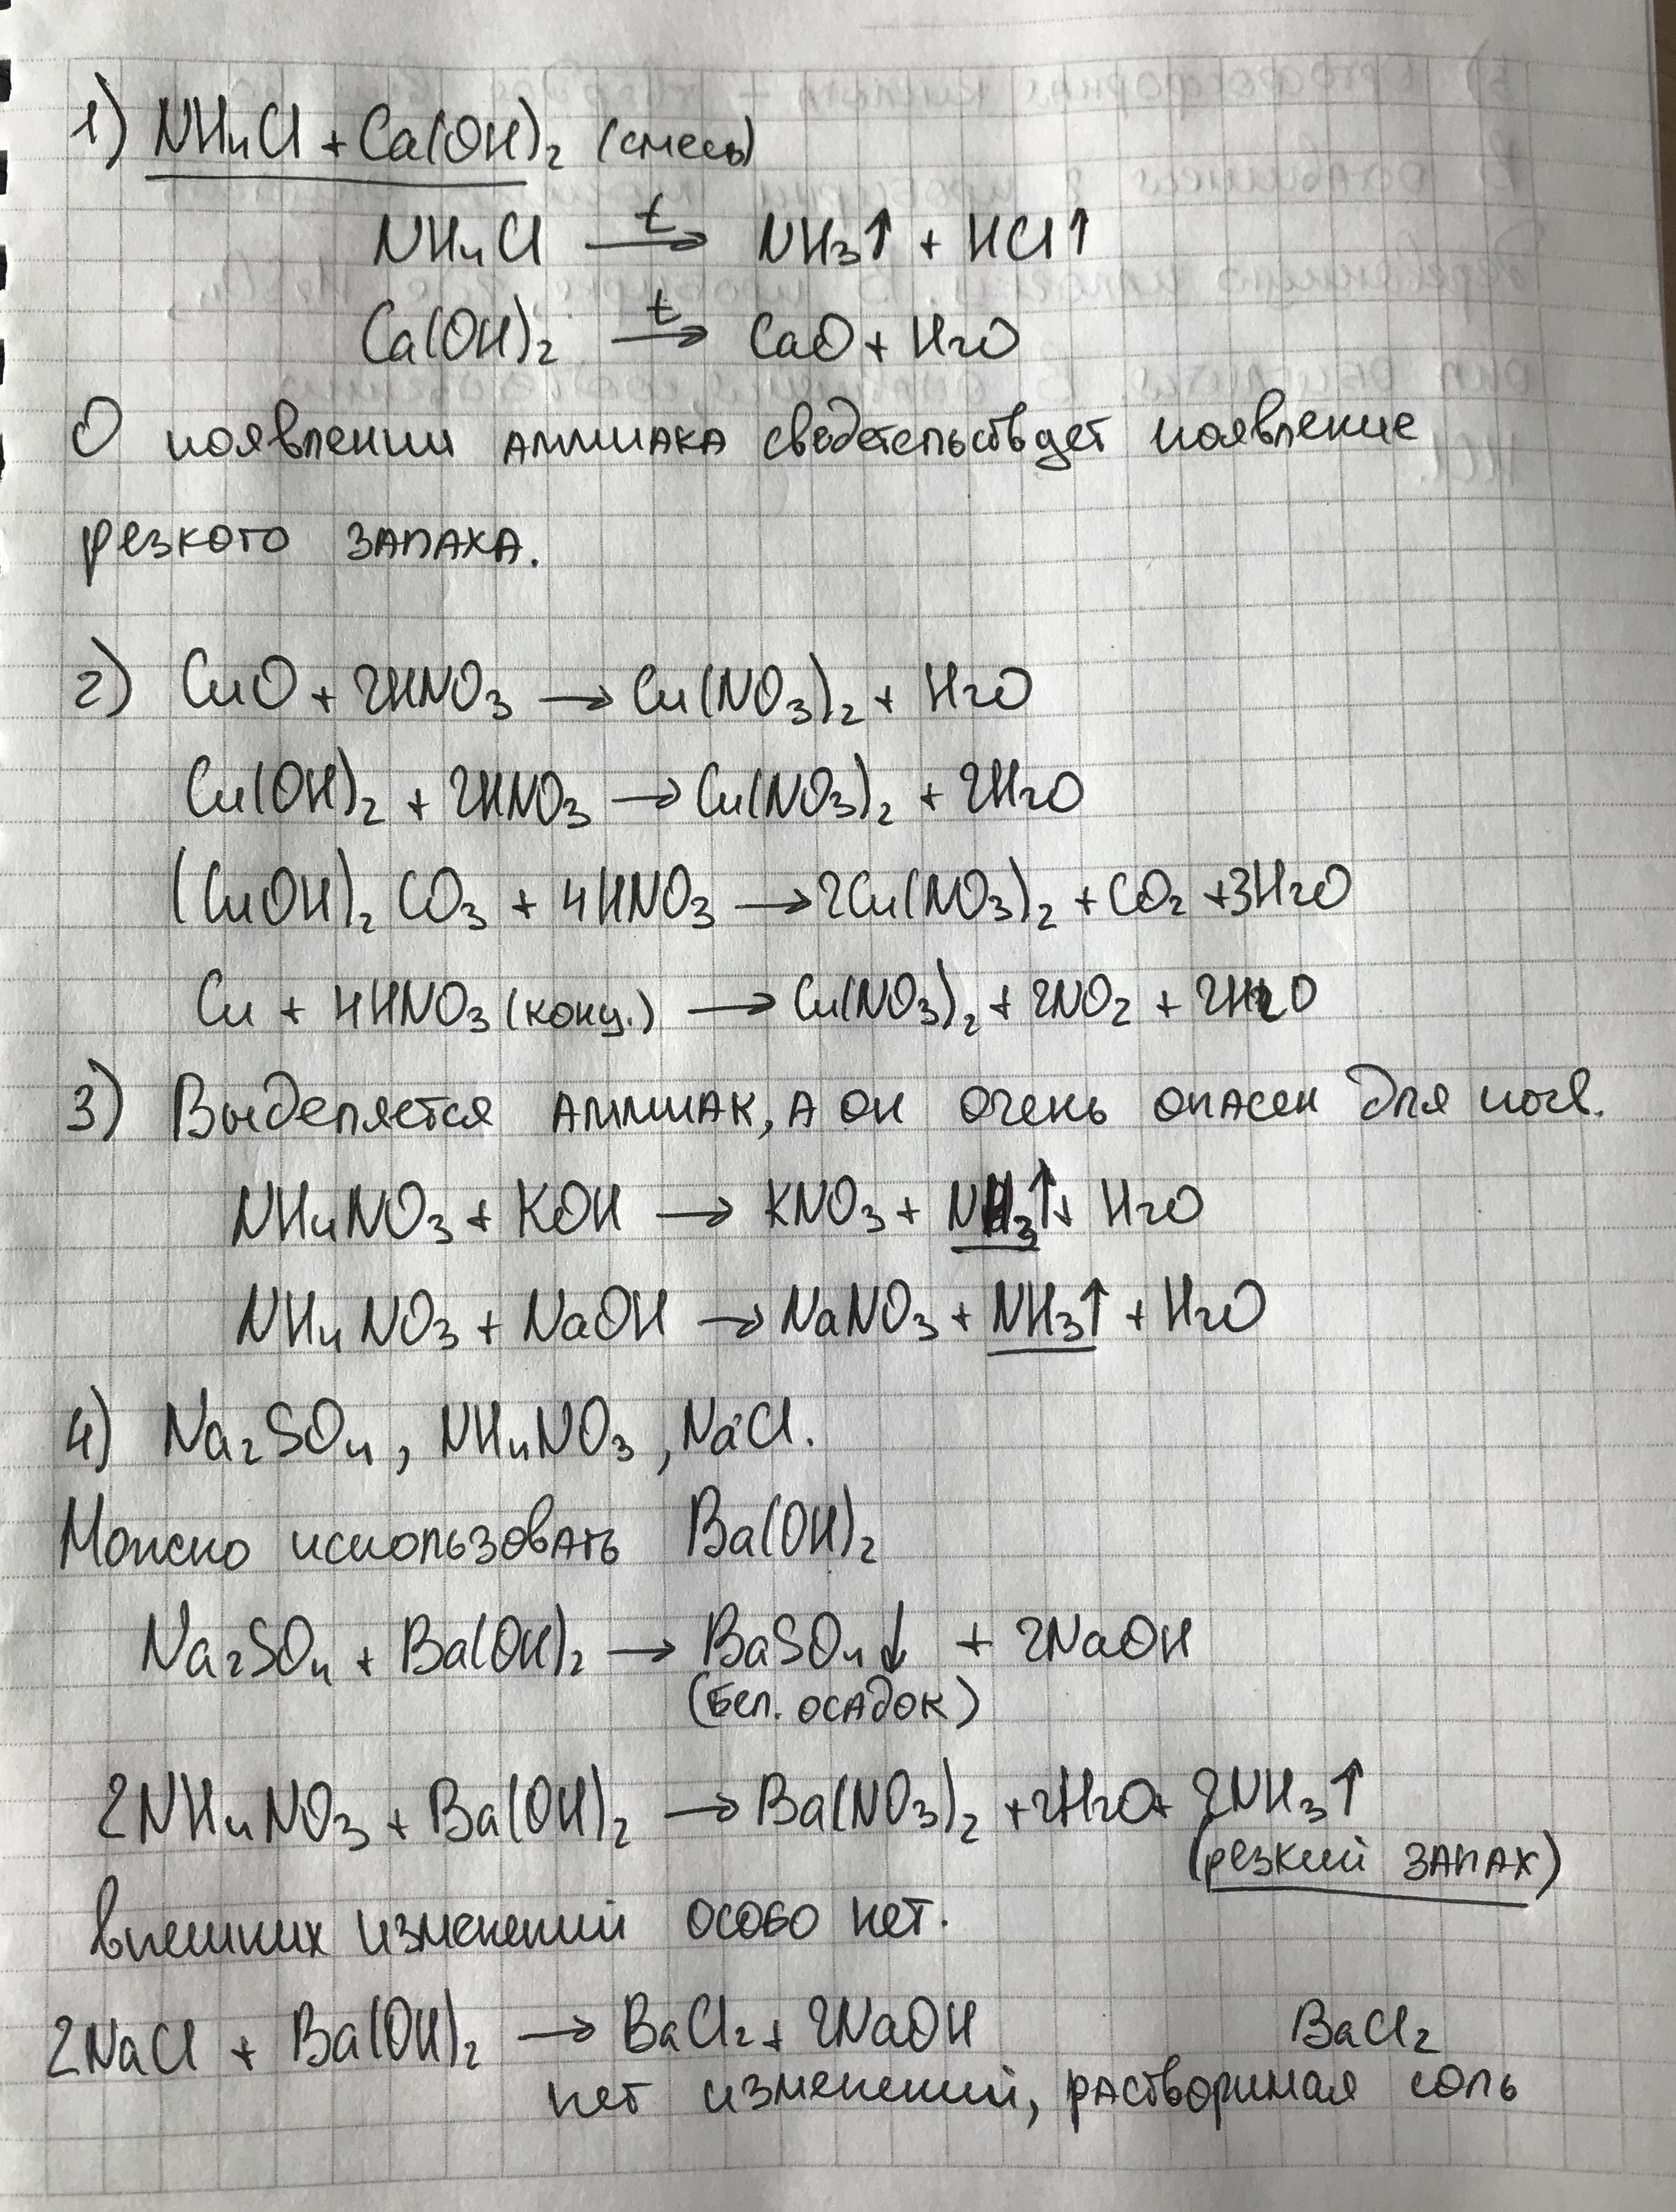 1) NH4Cl + Ca(OH)2 (смесь)
NH4Cl —t→ NH3↑ + HCl↑
Ca(OH)2 —t→ CaO + H2O
О появлении аммиака свидетельствует появление
резкого запаха.
2) CuO + 2HNO3 → Cu(NO3)2 + H2O
Cu(OH)2 + 2HNO3 → Cu(NO3)2 + 2H2O
(CuOH)2CO3 + 4HNO3 → 2Cu(NO3)2 + CO2 + 3H2O
Cu + 4HNO3 (конц.) → Cu(NO3)2 + 2NO2 + 2H2O
3) Выделяется аммиак, а он очень опасен для почв.
NH4NO3 + KOH → KNO3 + NH3↑ + H2O
NH4NO3 + NaOH → NaNO3 + NH3↑ + H2O
4) Na2SO4, NH4NO3, NaCl.
Можно использовать Ba(OH)2
Na2SO4 + Ba(OH)2 → BaSO4↓ + 2NaOH
(бел. осадок)
2NH4NO3 + Ba(OH)2 → Ba(NO3)2 + 2H2O + 2NH3↑
(резкий запах)
внешних изменений особо нет.
2NaCl + Ba(OH)2 → BaCl2 + 2NaOH BaCl2
нет изменений, растворимая соль